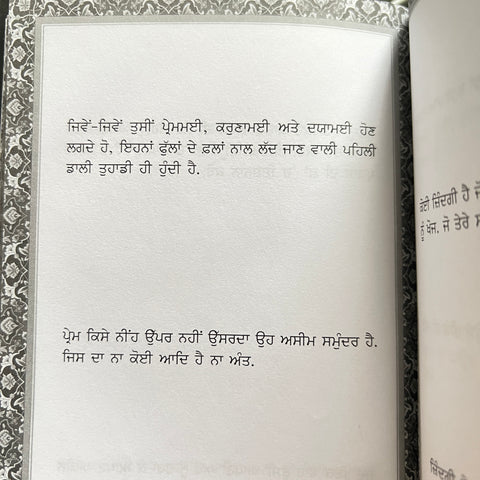 ਜਿਵੇਂ-ਜਿਵੇਂ ਤੁਸੀਂ ਪ੍ਰੇਮਮਈ, ਕਰੁਣਾਮਈ ਅਤੇ ਦਯਾਮਈ ਹੋਣ
ਲਗਦੇ ਹੋ, ਇਹਨਾਂ ਫੁੱਲਾਂ ਦੇ ਫ਼ਲਾਂ ਨਾਲ ਲੱਦ ਜਾਣ ਵਾਲੀ ਪਹਿਲੀ
ਡਾਲੀ ਤੁਹਾਡੀ ਹੀ ਹੁੰਦੀ ਹੈ.
ਪ੍ਰੇਮ ਕਿਸੇ ਨੀਂਹ ਉੱਪਰ ਨਹੀਂ ਉੱਸਰਦਾ ਉਹ ਅਸੀਮ ਸਮੁੰਦਰ ਹੈ.
ਜਿਸ ਦਾ ਨਾ ਕੋਈ ਆਦਿ ਹੈ ਨਾ ਅੰਤ.
ਕੋਈ ਜ਼ਿੰਦਗੀ ਹੈ
ਨੂੰ ਖੋਜ. ਜੋ ਤੇਰੇ
ਜ਼ਿੰਦਗੀ